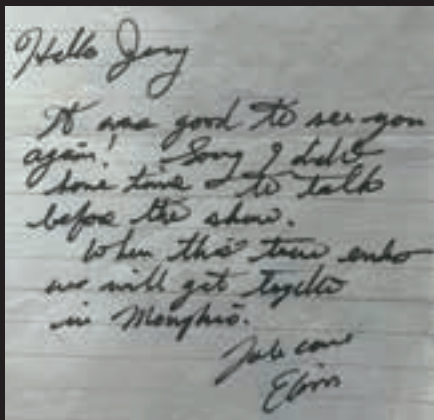 Hello Jerry
It was good to see you
again! Sorry I didn't
have time to talk
before the show.
When this tour ends
we will get together
in Memphis.
Take care
Elvis